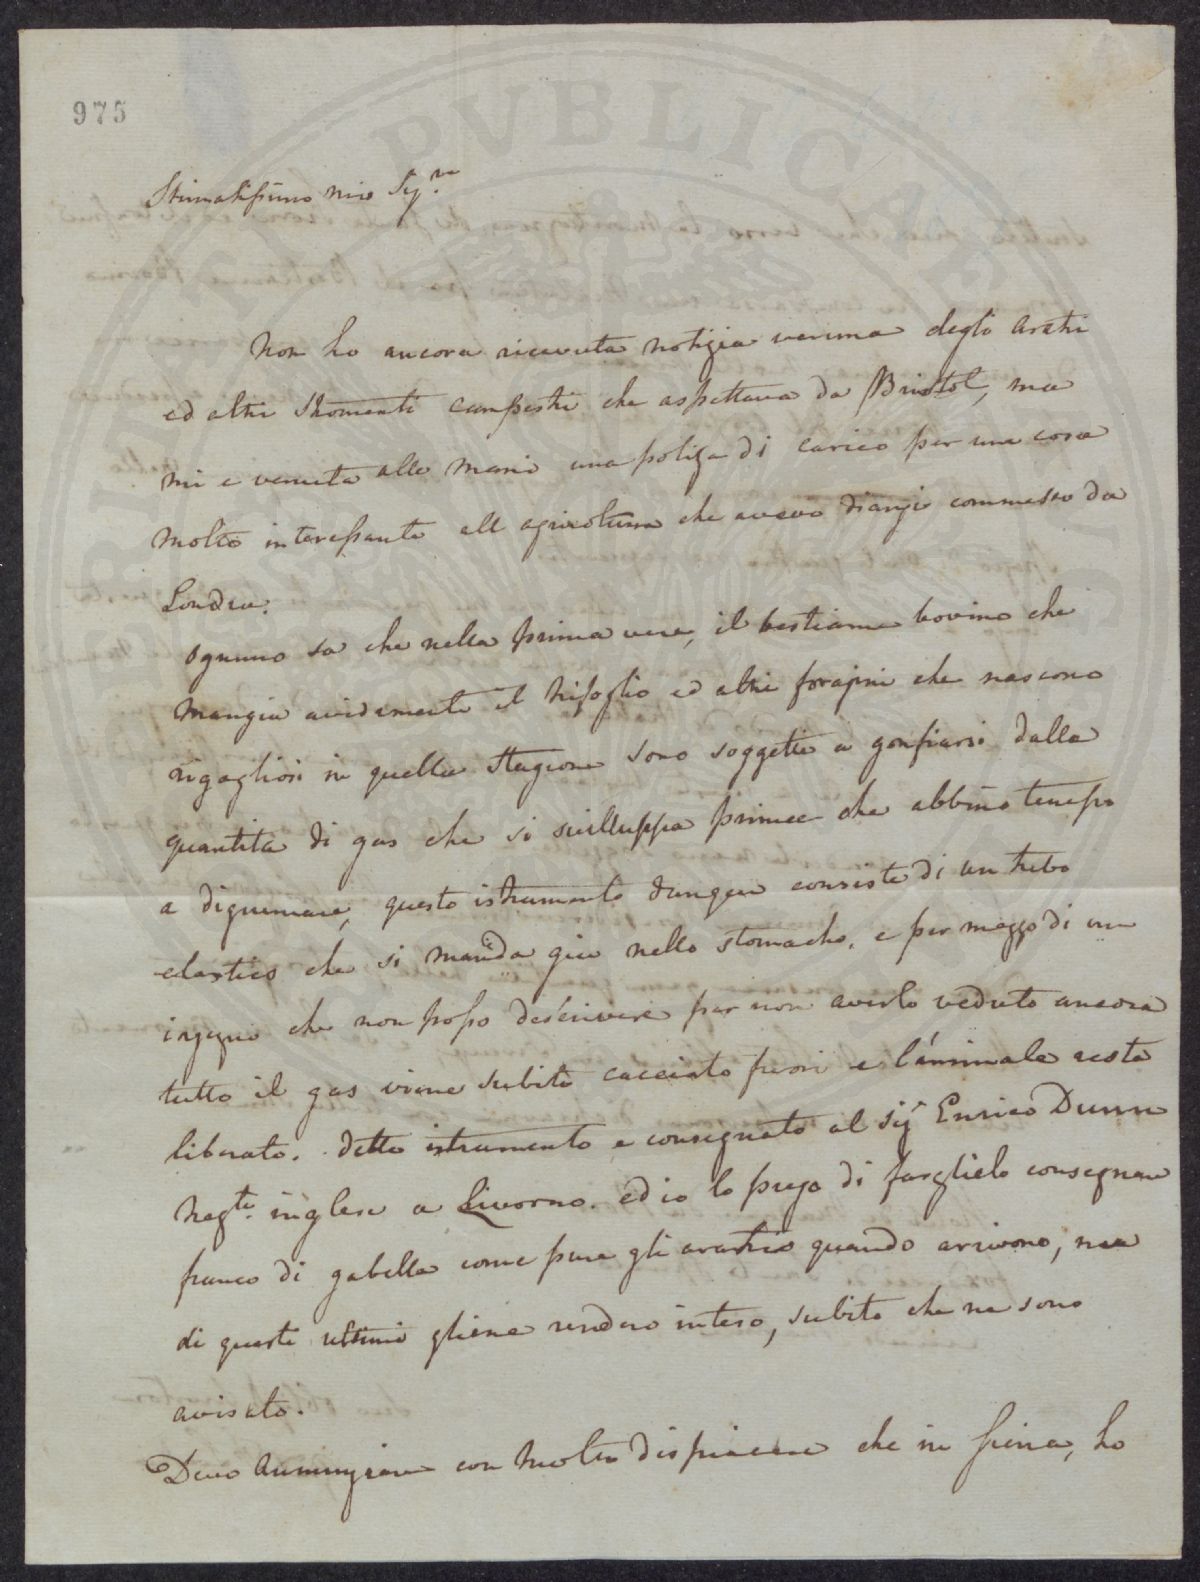 975
Stimatissimo mio Sigr.
Non ho ancora ricevuta notizia veruna degli aratri
ed altri stromenti campestri che aspettava da Bristol, ma
mi e venuta alle mani una poliza di carico per una cosa
molto interessante all agricoltura che avevo dianzi commesso da
Londra.
Ognuno sa che nella prima vera, il bestiame bovino che
mangia avidamente il trifoglio ed altri foragini che nascono
rigogliosi in quella stagione sono soggetti a gonfiarsi dalla
quantita di gas che si sviluppa prima che abbino tempo
a digrumare, questo istrumento dunque consiste di un tubo
elastico che si manda giu nello stomacho, e per mezzo di un
ingegno che non posso descrivere per non averlo veduto ancora
tutto il gas viene subito cacciato fuori e l'animale resta
liberato. detto istrumento e consegnato al Sigr Enrico Dunn
Negte. inglese a Livorno. ed io lo prego di farglielo consegnare
franco di gabella come pure gli aratri quando arivono, ma
di questi ultimi gliene rendero inteso, subito che ne sono
avisato.
Devo annunziare con molto dispiacere che in Siena, ho
PVBLICAE